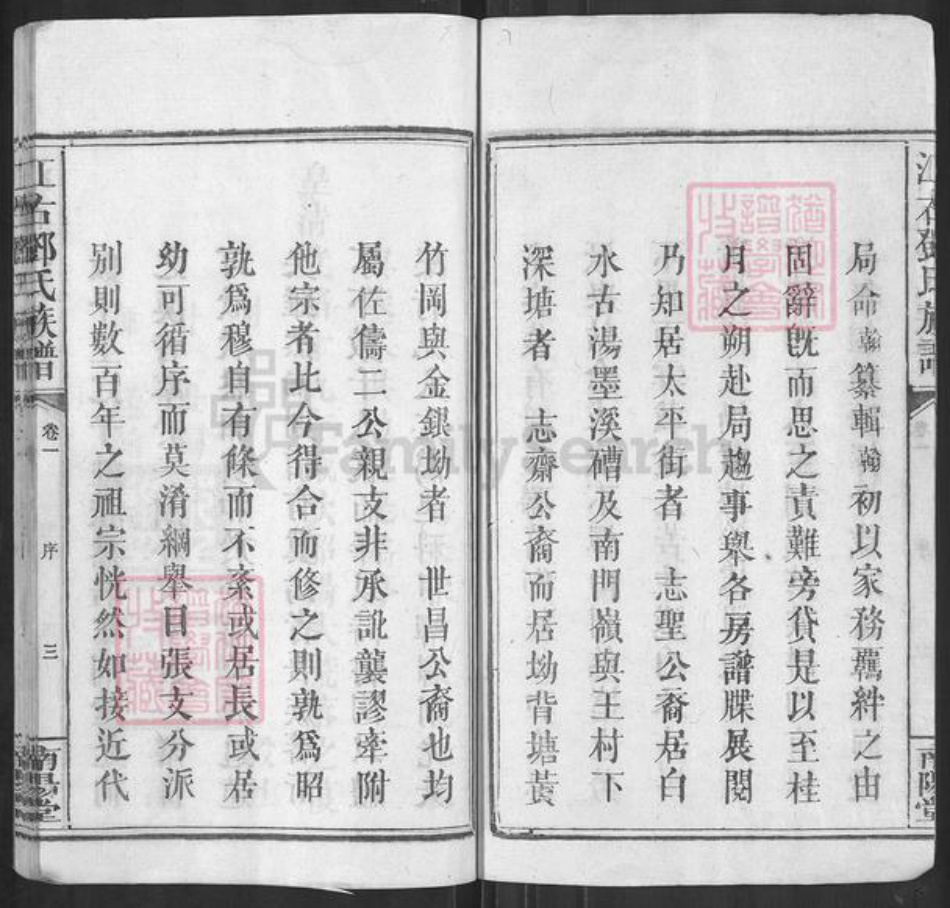 局命翰纂輯翰初以家務羈絆之由
固辭旣而思之責難旁貸是以至桂
月之朔赴局趨事舉各房譜牒展閱
乃知居太平街者 志聖公裔居白
水古湯墨溪磄及南門嶺與王村下
深塘者 志齋公裔而居坳背塘黃
竹岡與金銀坳者 世昌公裔也均
屬佐儔二公親支非承訛襲謬牽附
他宗者比今得合而修之則孰爲昭
孰爲穆自有條而不紊或居長或居
幼可循序而莫淆綱舉目張支分派
別則數百年之祖宗恍然如接近代
江右鄧氏族譜
卷一
序
三
南陽堂
FamilySearch